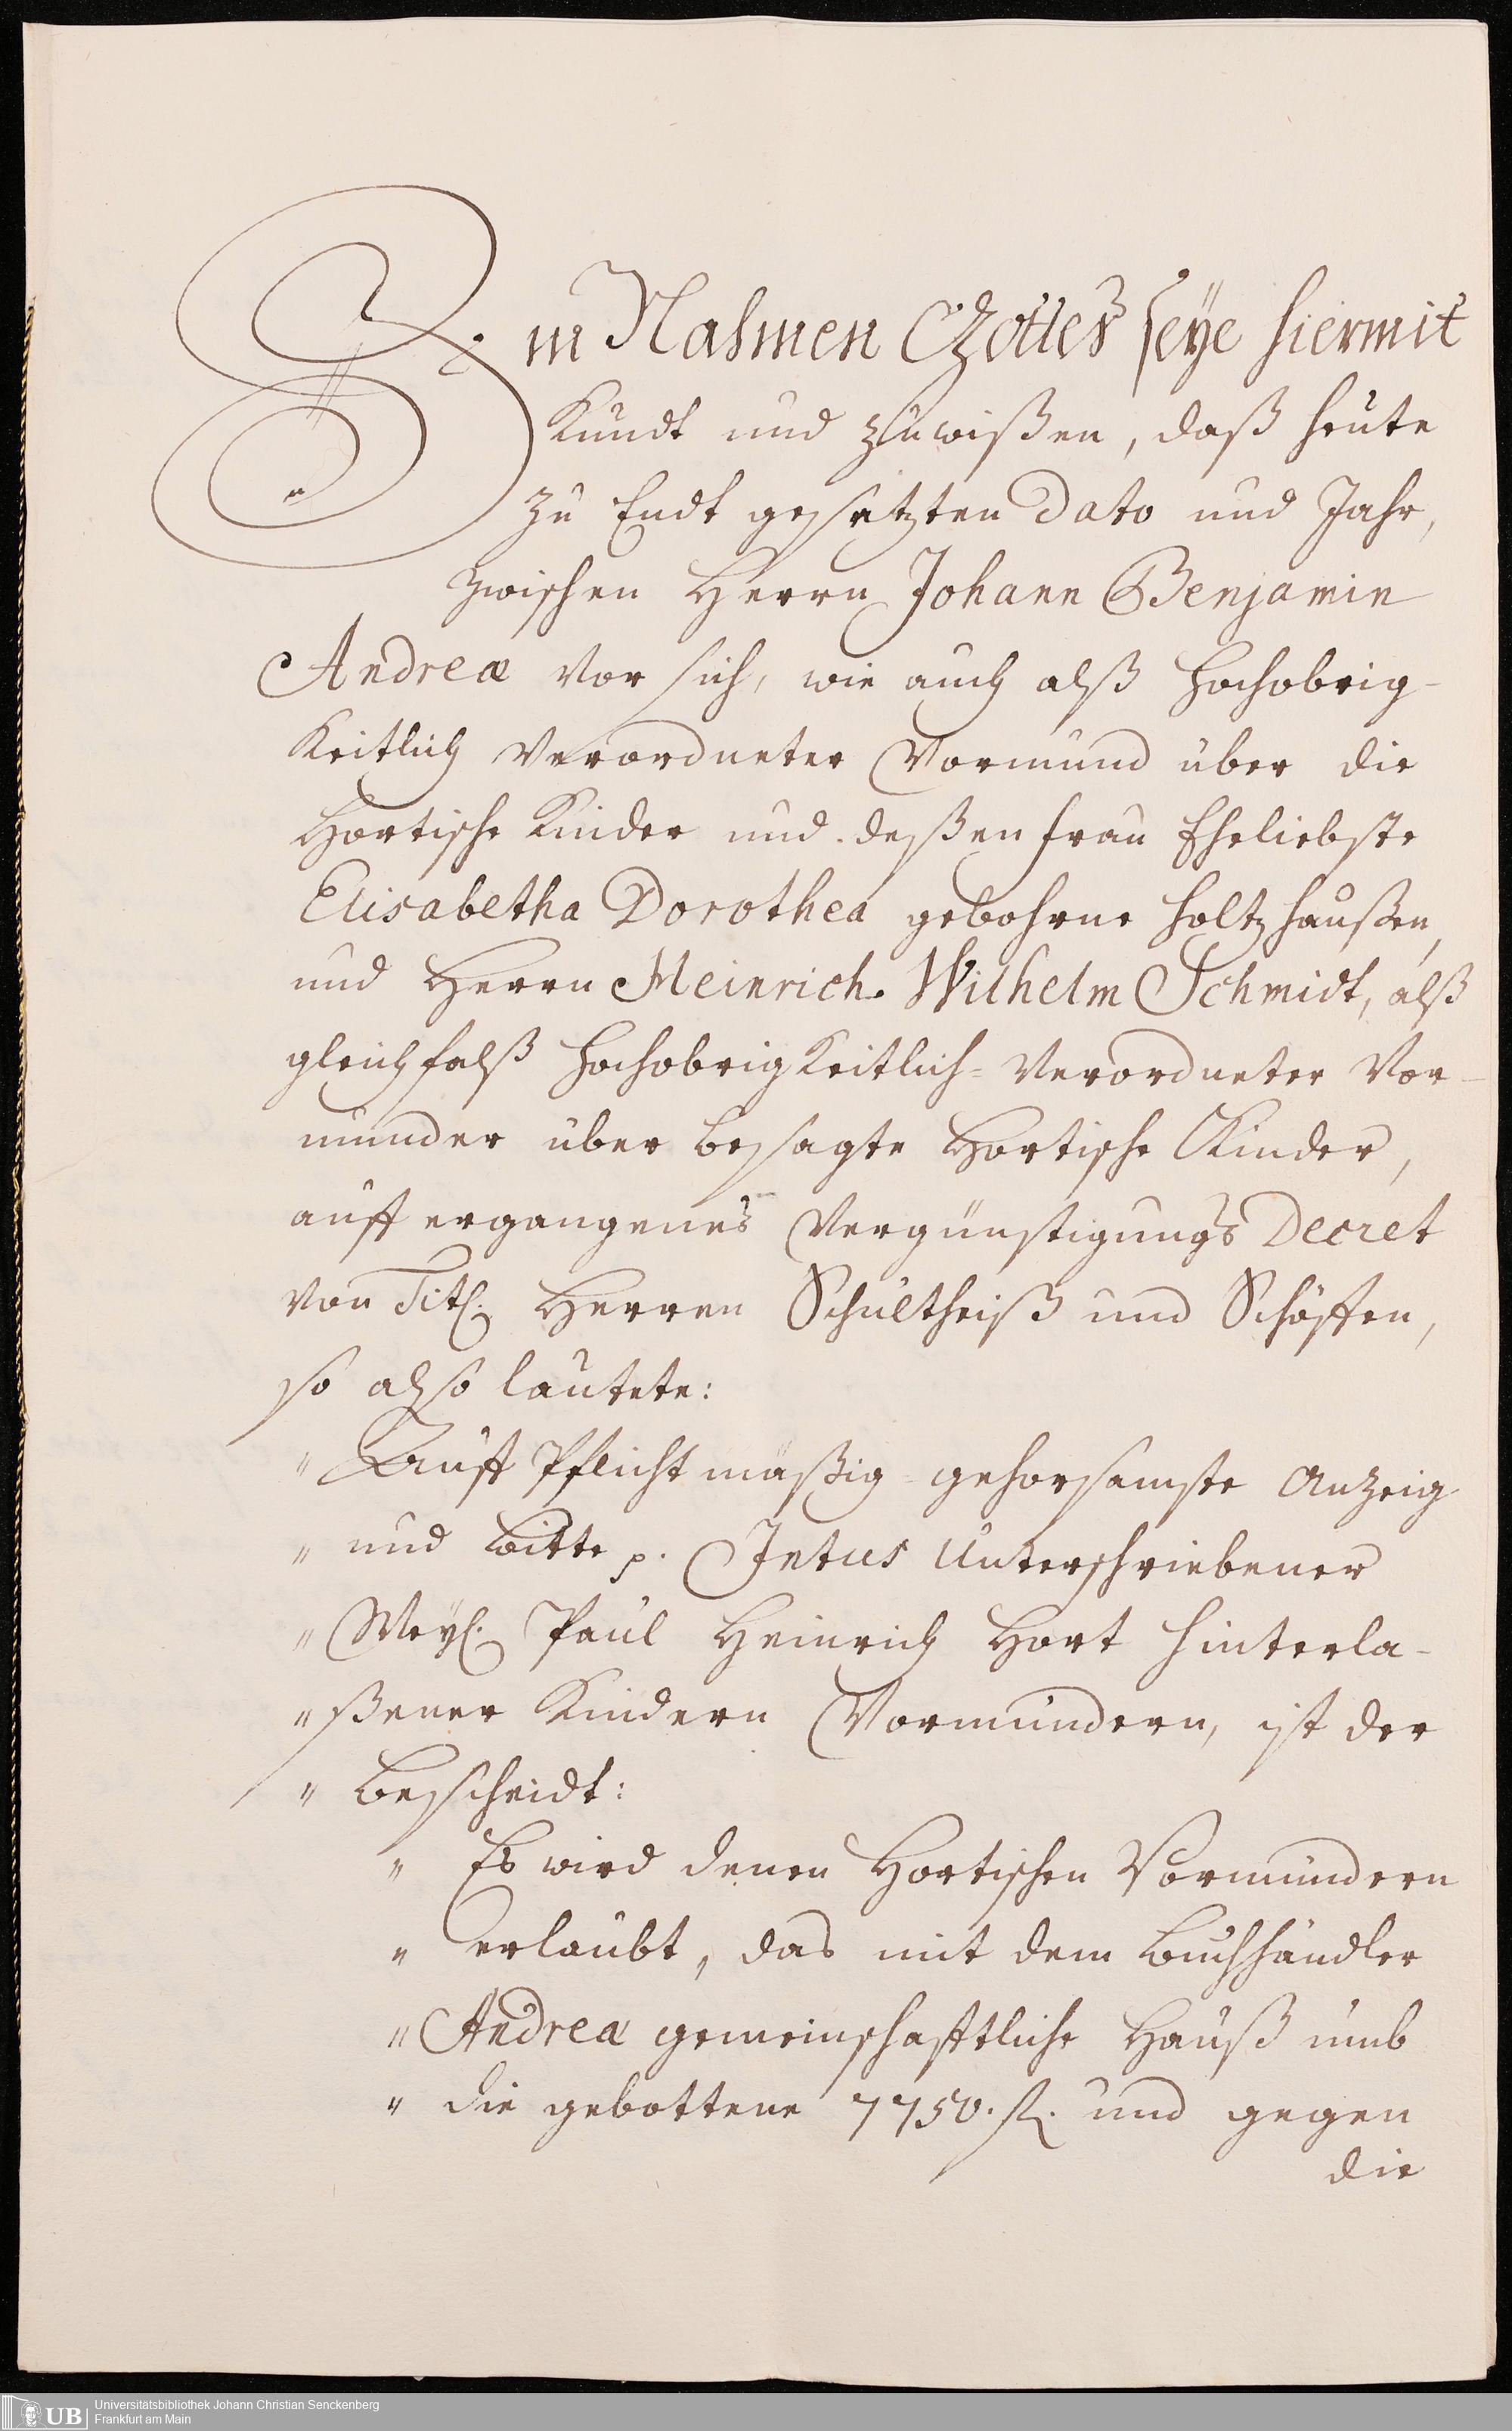 Im Nahmen Gottes seye hiermit
Kundt und zu wißen, daß heute
zu Endt gesetzten Dato und Jahr,
zwischen Herrn Johann Benjamin
Andreæ vor sich, wie auch alß hochobrig-
keitlich verordneter Vormund über die
Hortische Kinder und deßen Frau Eheliebste
Elisabetha Dorothea gebohrne Holtzhaußen,
und Herrn Heinrich Wilhelm Schmidt, alß
gleichfalß hochobrigkeitlich-verordneter Vor-
munder über besagte Hortische Kinder,
auff ergangenes Vergünstigungs Decret
von Titl. Herren Schultheiß und Schöffen,
so also lautete:
" Auff Pflichtmäßig-gehorsamste Anzeig
" und Bitte p. Intus Unterschriebener
" Weyl. Paul Heinrich Hort hinterla-
" ßener Kindern Vormündern, ist der
" Bescheidt:
" Es wird denen Hortischen Vormündern
" erlaubt, das mit dem Buchhändler
" Andreæ gemeinschafftliche Hauß umb
" die gebottene 7750. fl. und gegen
die
Universitätsbibliothek Johann Christian Senckenberg
Frankfurt am Main
UB